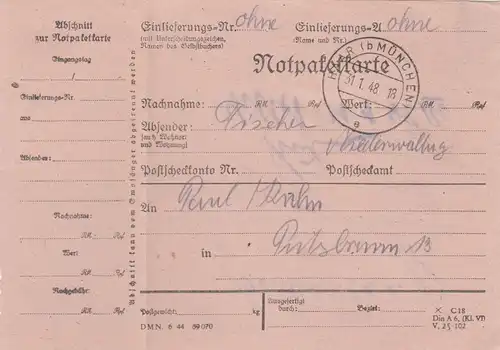 Abschnitt
zur Notpaketkarte
Eingangstag
Einlieferungs-Nr.
aus
Absender:
Nachnahme:
RM Rpf
Wert:
RM Rpf
Nachgebühr:
RM Rpf
Abschnitt kann vom Empfänger abgetrennt werden
Einlieferungs-Nr. ohne
(mit Unterscheidungszeichen,
Namen des Selbstbuchers)
Einlieferungs-A ohne
(Name und Nr.)
Notpaketkarte
HAAR (b MÜNCHEN)
31.1.48 18
a
Nachnahme: RM Rpf Wert: RM Rpf
Absender: Fischer
(auch Wohnort
und Wohnung)
Postscheckkonto Nr. Postscheckamt
An Paul
in Putzbrunn 13
Postgewicht: kg
Ausgefertigt
durch: Bezirk:
DMN. 6 44 59070
× C18
Din A 6, (Kl. VI)
V, 25 102